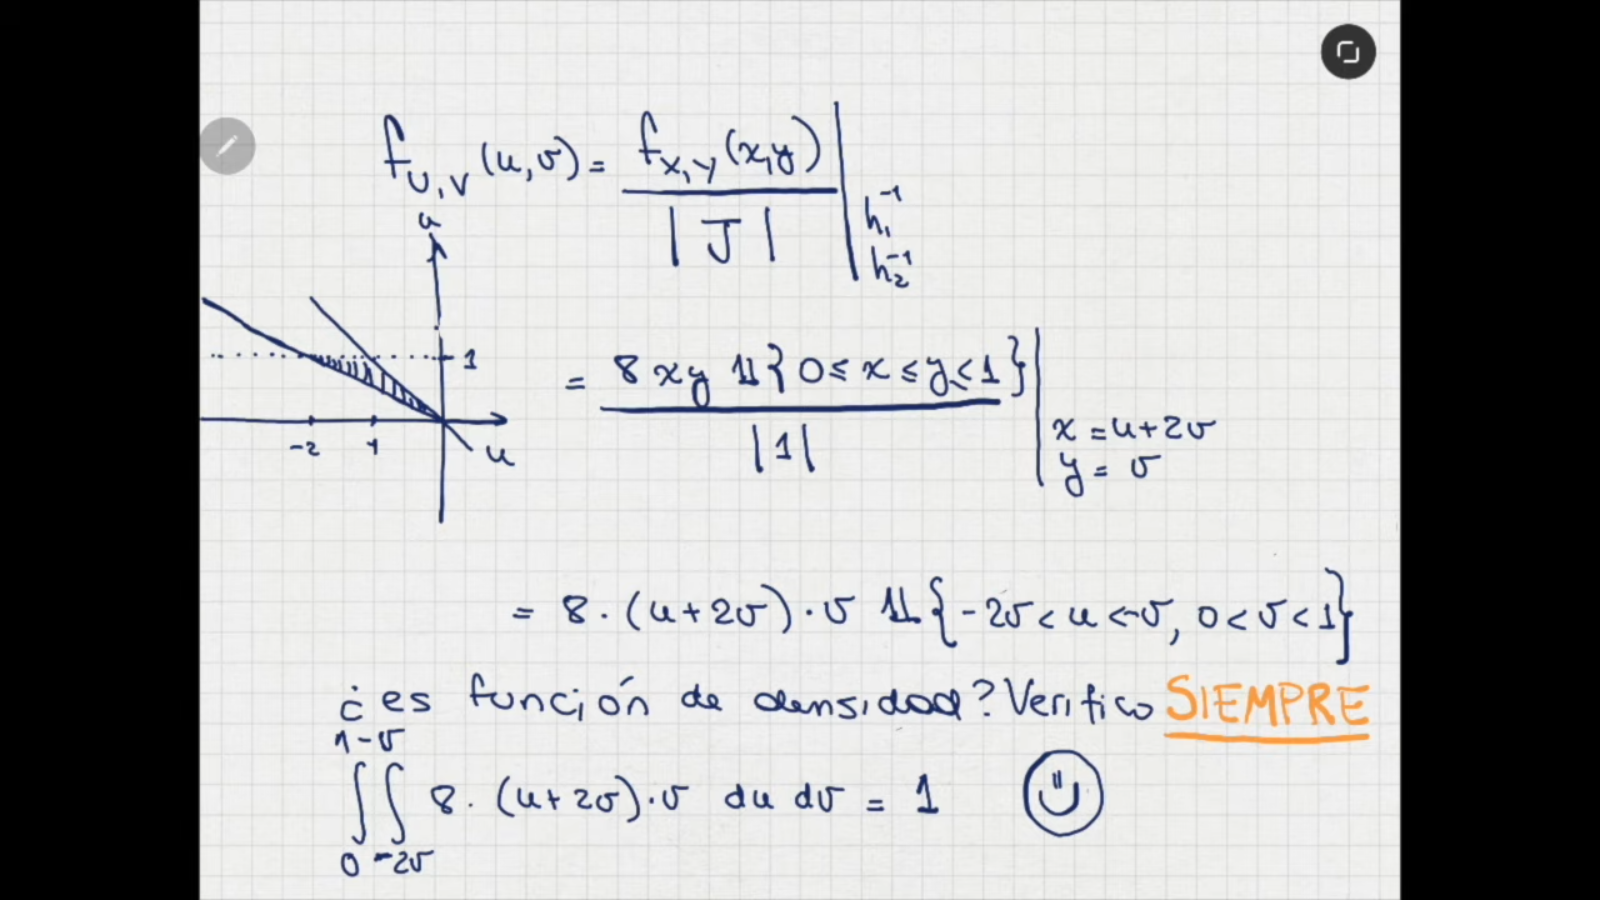 f_{U,V}(u,v) = f_{X,Y}(x,y) / |J| | h_1^{-1} h_2^{-1}
u
1
-2 1 u
= 8xy 𝟙{0 ≤ x ≤ y < 1} / |1| | x = u+2v
y = v
= 8·(u+2v)·v 𝟙{-2v < u < -v, 0 < v < 1}
¿es función de densidad? Verifico SIEMPRE
∫_0^1 ∫_{-2v}^{-v} 8·(u+2v)·v du dv = 1